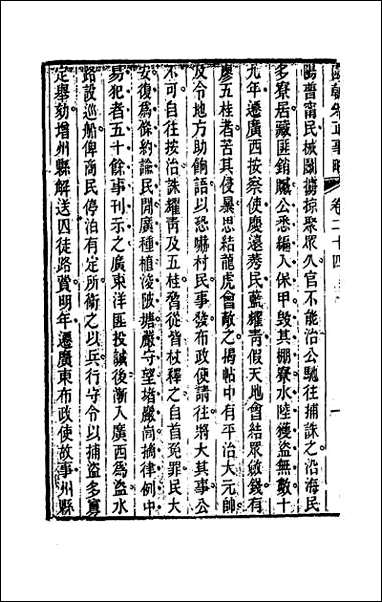 國朝先正事略 卷二十四
陽普甯民械鬬擄掠聚眾久官不能治公馳往捕誅之沿海民
多寮居藏匪銷贓公悉編入保甲毀其棚寮水陸獲盜無數十
九年遷廣西按察使慶遠莠民藍耀青假天地會結眾斂錢有
廖五桂者苦其侵暴思結龍虎會敵之揭帖中有平治大元帥
及令地方助餉語以恐嚇村民事發布政使請往將大其事公
不可自往按治誅耀青及五桂脅從皆杖釋之自首免罪民大
安復為條約諭民開廣種植浚陂塘嚴守望緝嚴尚摘律例中
易犯者五十餘事刊示之廣東洋匪投誠後漸入廣西為盜水
路設巡船俾商民停泊有定所衛之以兵行守令以捕盜多寡
定舉劾增州縣解送囚徒路費明年遷廣東布政使故事州縣